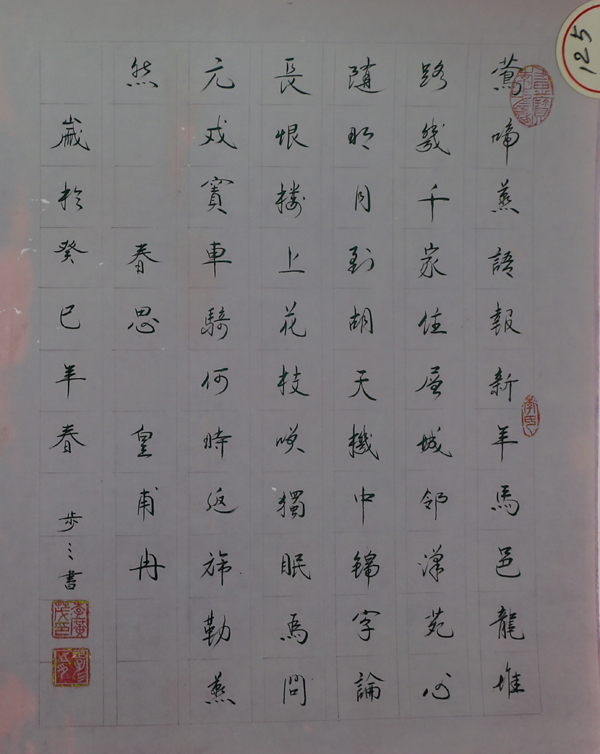 125
鶯啼燕語報新年馬邑龍堆
路幾千家住層城鄰漢苑心
隨明月到胡天機中錦字論
長恨樓上花枝咲獨眠為問
元戎竇車騎何時返旆勒燕
然 春思 皇甫冉
歲於癸巳年春 步之書